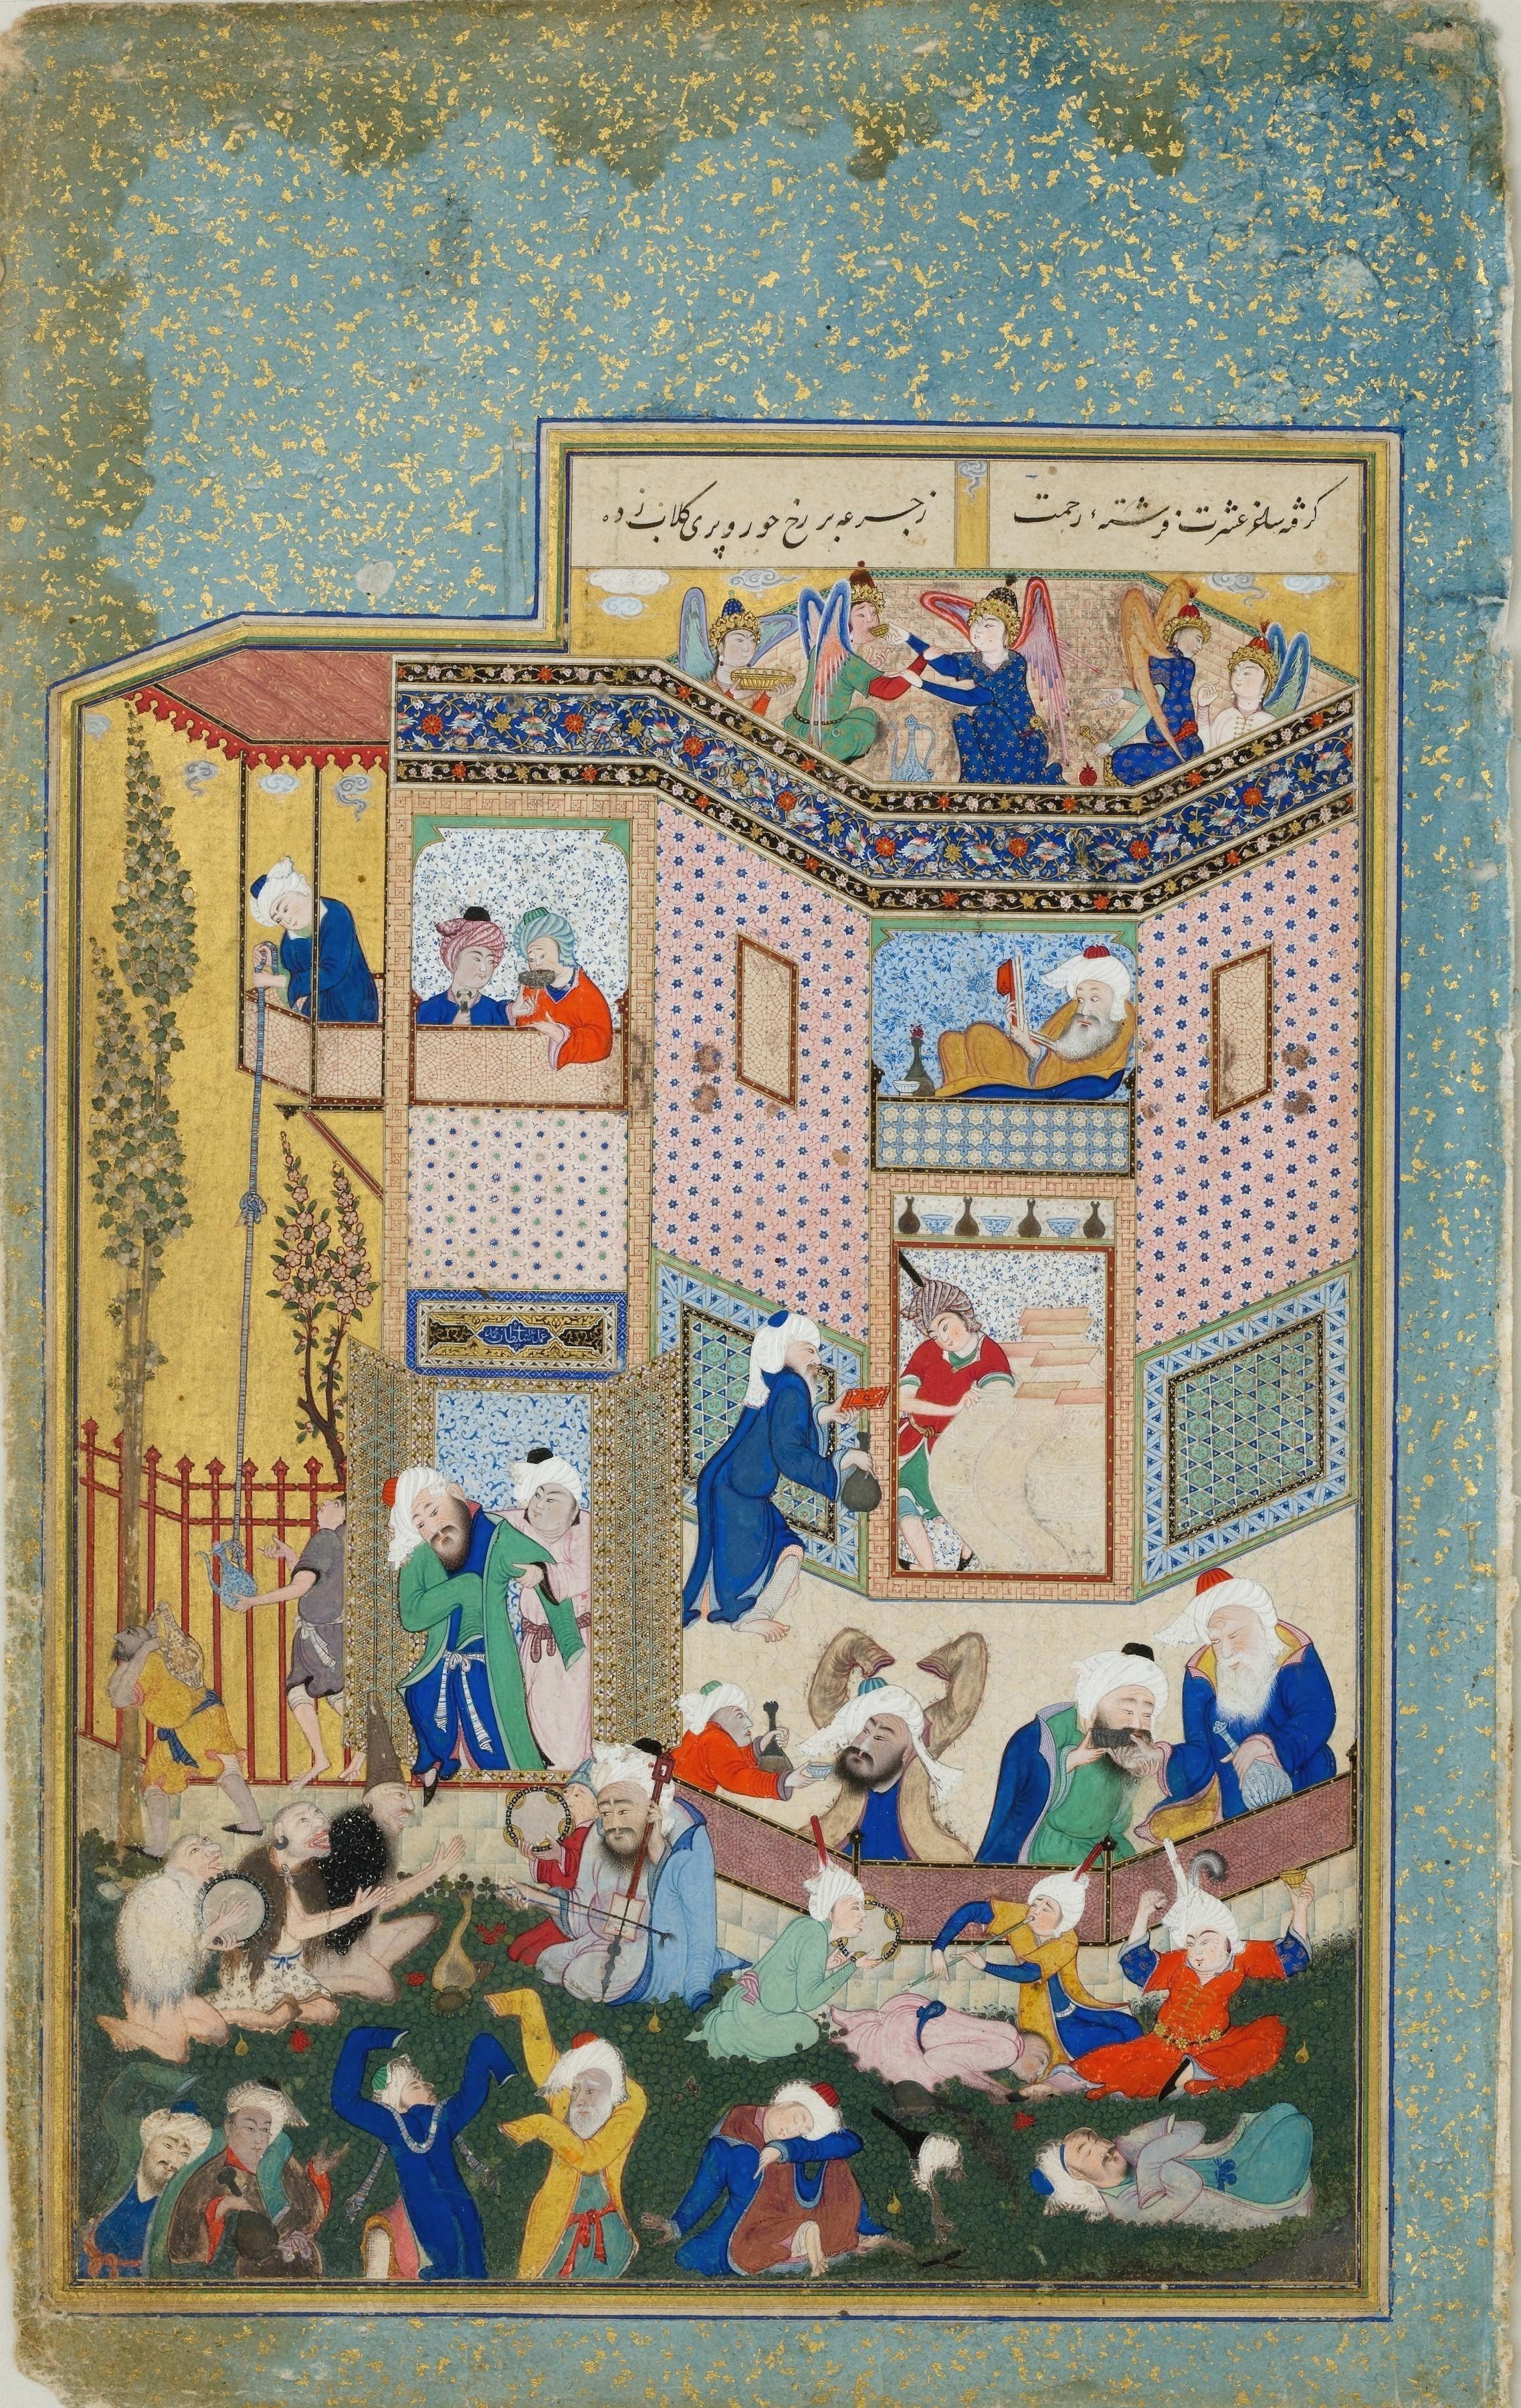 گرفته ساغر عشرت فرشتهٔ رحمت
ز جرعه بر رخ حور و پری گلاب زده
عمل سلطان محمد